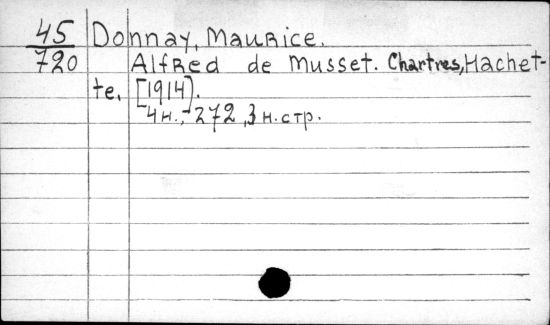 45 Donnay, Maurice.
720 Alfred de Musset. Chartres, Hachet-
te. [1914].
4 н., 272, 3 н. стр.